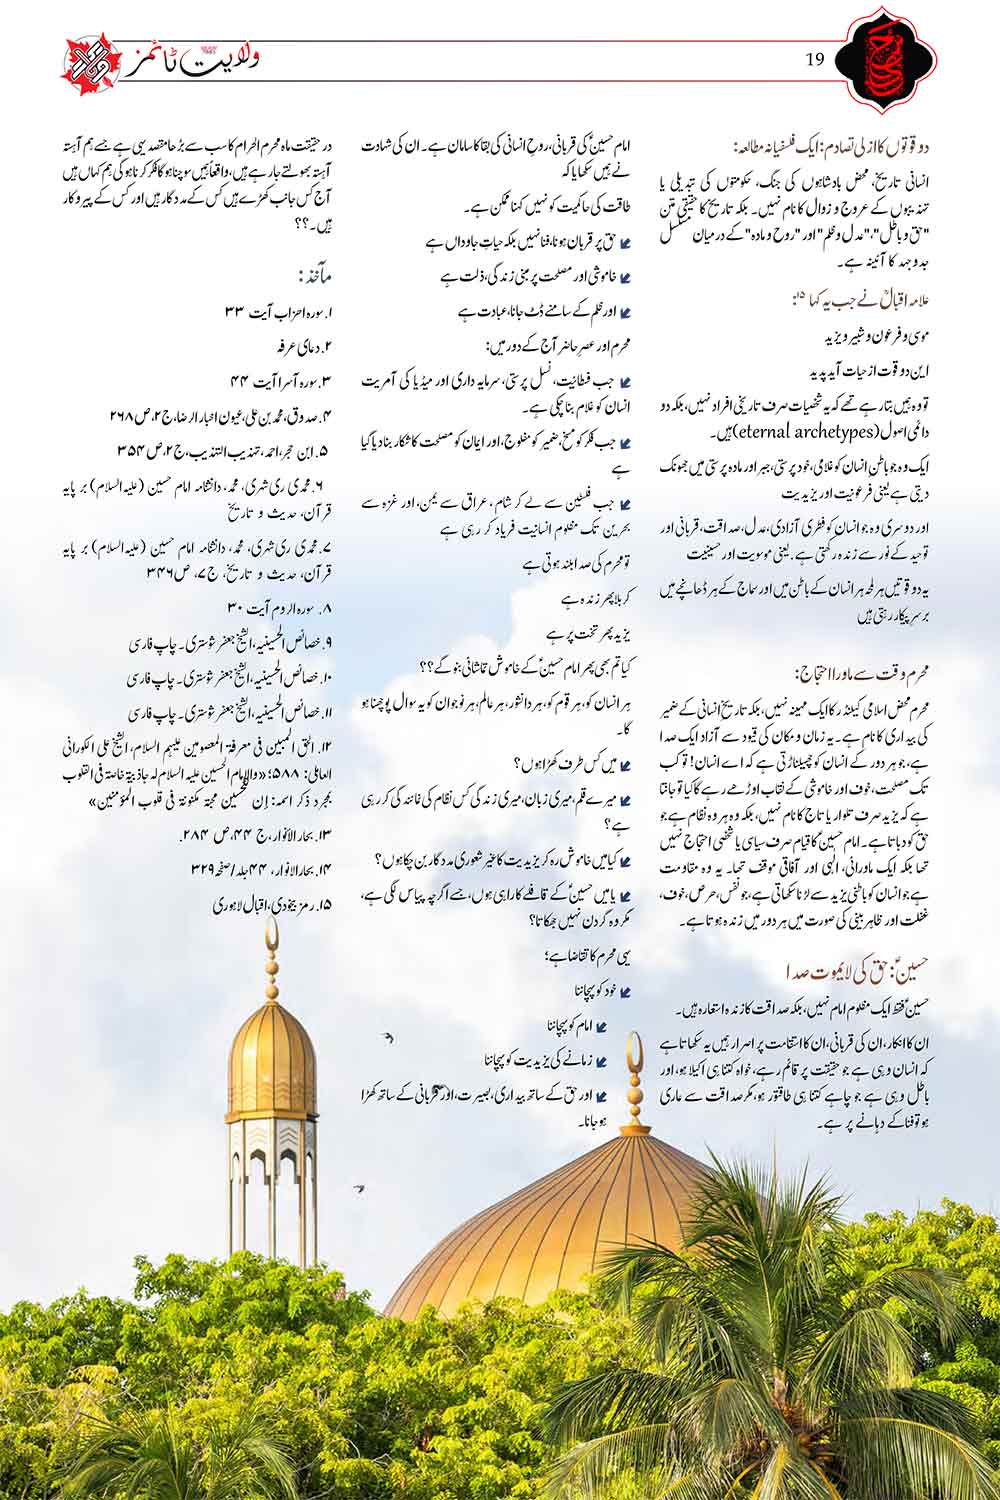 ولایت ٹائمز
19
دو قوتوں کا ازلی تصادم: ایک فلسفیانہ مطالعہ:
انسانی تاریخ، محض بادشاہوں کی جنگ، حکومتوں کی تبدیلی یا
تہذیبوں کے عروج و زوال کا نام نہیں۔ بلکہ تاریخ کا حقیقی متن
"حق و باطل"، "عدل و ظلم" اور "روح و مادہ" کے درمیان مسلسل
جدوجہد کا آئینہ ہے۔
علامہ اقبالؒ نے جب یہ کہا ۱۵:
موسی و فرعون و شبیر و یزید
این دو قوت از حیات آید پدید
تو وہ ہمیں بتا رہے تھے کہ یہ شخصیات صرف تاریخی افراد نہیں، بلکہ دو
دائمی اصول (eternal archetypes) ہیں۔
ایک وہ جو باطن انسان کو غلامی، خود پرستی، جبر اور مادہ پرستی میں جھونک
دیتی ہے یعنی فرعونیت اور یزیدیت
اور دوسری وہ جو انسان کو فطری آزادی، عدل، صداقت، قربانی اور
توحید کے نور سے زندہ رکھتی ہے۔ یعنی موسویت اور حسینیت
یہ دو قوتیں ہر لمحہ ہر انسان کے باطن میں اور سماج کے ہر ڈھانچے میں
برسرِ پیکار رہتی ہیں
محرم وقت سے ماورا احتجاج:
محرم محض اسلامی کیلنڈر کا ایک مہینہ نہیں، بلکہ تاریخ انسانی کے ضمیر
کی بیداری کا نام ہے۔ یہ زمان و مکان کی قیود سے آزاد ایک صدا
ہے، جو ہر دور کے انسان کو چیلنج کرتی ہے کہ اے انسان! تو کب
تک مصلحت، خوف اور خاموشی کے نقاب اوڑھے رہے گا کیا تو جانتا
ہے کہ یزید صرف تلوار یا تاج کا نام نہیں، بلکہ وہ ہر وہ نظام ہے جو
حق کو دباتا ہے۔ امام حسینؑ کا قیام صرف سیاسی یا شخصی احتجاج نہیں
تھا بلکہ ایک ماورائی، الٰہی اور آفاقی موقف تھا۔ یہ وہ مقاومت
ہے جو انسان کو باطنی یزید سے لڑنا سکھاتی ہے، جو نفس، حرص، خوف،
غفلت اور ظاہر بینی کی صورت میں ہر دور میں زندہ ہوتا ہے۔
حسینؑ: حق کی لایموت صدا
حسینؑ فقط ایک مظلوم امام نہیں، بلکہ صداقت کا زندہ استعارہ ہیں۔
ان کا انکار، ان کی قربانی، ان کا استقامت پر اصرار ہمیں یہ سکھاتا ہے
کہ انسان وہی ہے جو حقیقت پر قائم رہے، خواہ کتنا ہی اکیلا ہو، اور
باطل وہی ہے جو چاہے کتنا ہی طاقتور ہو، مگر صداقت سے عاری
ہو تو فنا کے دہانے پر ہے۔
امام حسینؑ کی قربانی، روحِ انسانی کی بقا کا سامان ہے۔ ان کی شہادت
نے ہمیں سکھایا کہ
طاقت کی حاکمیت کو نہیں کہنا ممکن ہے۔
حق پر قربان ہونا، فنا نہیں بلکہ حیاتِ جاوداں ہے
خاموشی اور مصلحت پر مبنی زندگی، ذلت ہے
اور ظلم کے سامنے ڈٹ جانا، عبادت ہے
محرم اور عصرِ حاضر آج کے دور میں:
جب فسطائیت، نسل پرستی، سرمایہ داری اور میڈیا کی آمریت
انسان کو غلام بنا چکی ہے۔
جب فکر کو مسخ، ضمیر کو مفلوج، اور ایمان کو مصلحت کا شکار بنا دیا گیا
ہے
جب فلسطین سے لے کر شام، عراق سے یمن، اور غزہ سے
بحرین تک مظلوم انسانیت فریاد کر رہی ہے
تو محرم کی صدا بلند ہوتی ہے
کربلا پھر زندہ ہے
یزید پھر تخت پر ہے
کیا تم بھی پھر امام حسینؑ کے خاموش تماشائی بنو گے؟؟
ہر انسان کو، ہر قوم کو، ہر دانشور، ہر عالم، ہر نوجوان کو یہ سوال پوچھنا ہو
گا۔
میں کس طرف کھڑا ہوں؟
میرے قلم، میری زبان، میری زندگی کس نظام کی نمائندگی کر رہی
ہے؟
کیا میں خاموش رہ کر یزیدیت کا غیر شعوری مددگار بن چکا ہوں؟
یا میں حسینؑ کے قافلے کا راہی ہوں، جسے اگرچہ پیاس لگی ہے،
مگر وہ گردن نہیں جھکاتا؟
یہی محرم کا تقاضا ہے؛
خود کو پہچاننا
امام کو پہچاننا
زمانے کی یزیدیت کو پہچاننا
اور حق کے ساتھ بیداری، بصیرت، اور قربانی کے ساتھ کھڑا
ہو جانا۔
در حقیقت ماہ محرم الحرام کا سب سے بڑا مقصد یہی ہے جسے ہم آہستہ
آہستہ بھولتے جا رہے ہیں، واقعاً ہمیں سوچنا ہوگا فکر کرنا ہوگی ہم کہاں ہیں
آج کس جانب کھڑے ہیں کس کے مددگار ہیں اور کس کے پیروکار
ہیں۔؟؟
مآخذ:
۱. سورہ احزاب آیت ۳۳
۲. دعای عرفہ
۳. سورہ آسرا آیت ۴۴
۴. صدوق، محمد بن علی، عیون اخبار الرضا، ج ۲، ص ۲۶۸
۵. ابن حجر، احمد، تهذیب التهذیب، ج ۲، ص ۳۵۴
۶. محمدی ری شہری، محمد، دانشنامہ امام حسین (علیہ السلام) بر پایہ
قرآن، حدیث و تاریخ
۷. محمدی ری شہری، محمد، دانشنامہ امام حسین (علیہ السلام) بر پایہ
قرآن، حدیث و تاریخ، ج ۷، ص ۳۴۶
۸. سورہ الروم آیت ۳۰
۹. خصائص الحسینیہ، الشیخ جعفر شوستری۔ چاپ فارسی
۱۰. خصائص الحسینیہ، الشیخ جعفر شوستری۔ چاپ فارسی
۱۱. خصائص الحسینیہ، الشیخ جعفر شوستری۔ چاپ فارسی
۱۲. الحق المبین فی معرفة المعصومین علیہم السلام، الشیخ علی الکورانی
العاملی: ۵۸۸؛ «والإمام الحسین علیہ السلام لہ جاذبیة خاصة فی القلوب
بمجرد ذکر اسمہ: إن للحسین محبة مکنونة فی قلوب المؤمنین»
۱۳. بحار الانوار، ج ۴۴، ص ۲۸۴.
۱۴. بحار الانوار، ۴۴ جلد/صفحہ ۳۲۹
۱۵. رمز بیخودی، اقبال لاہوری